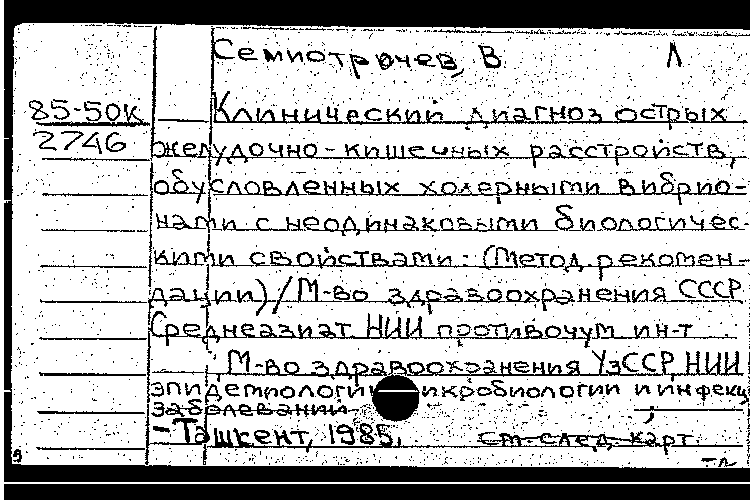 Семиотрочев, В Л
85-50к
2746
Клинический диагноз острых
желудочно-кишечных расстройств,
обусловленных холерными вибрио-
нами с неодинаковыми биологичес-
кими свойствами: (Метод. рекомен-
дации) / М-во здравоохранения СССР
Среднеазиат НИИ противочум ин-т
М-во здравоохранения УзССР, НИИ
эпидемиологии микробиологии и инфекц
заболеваний
- Ташкент, 1985.
см. след. карт.